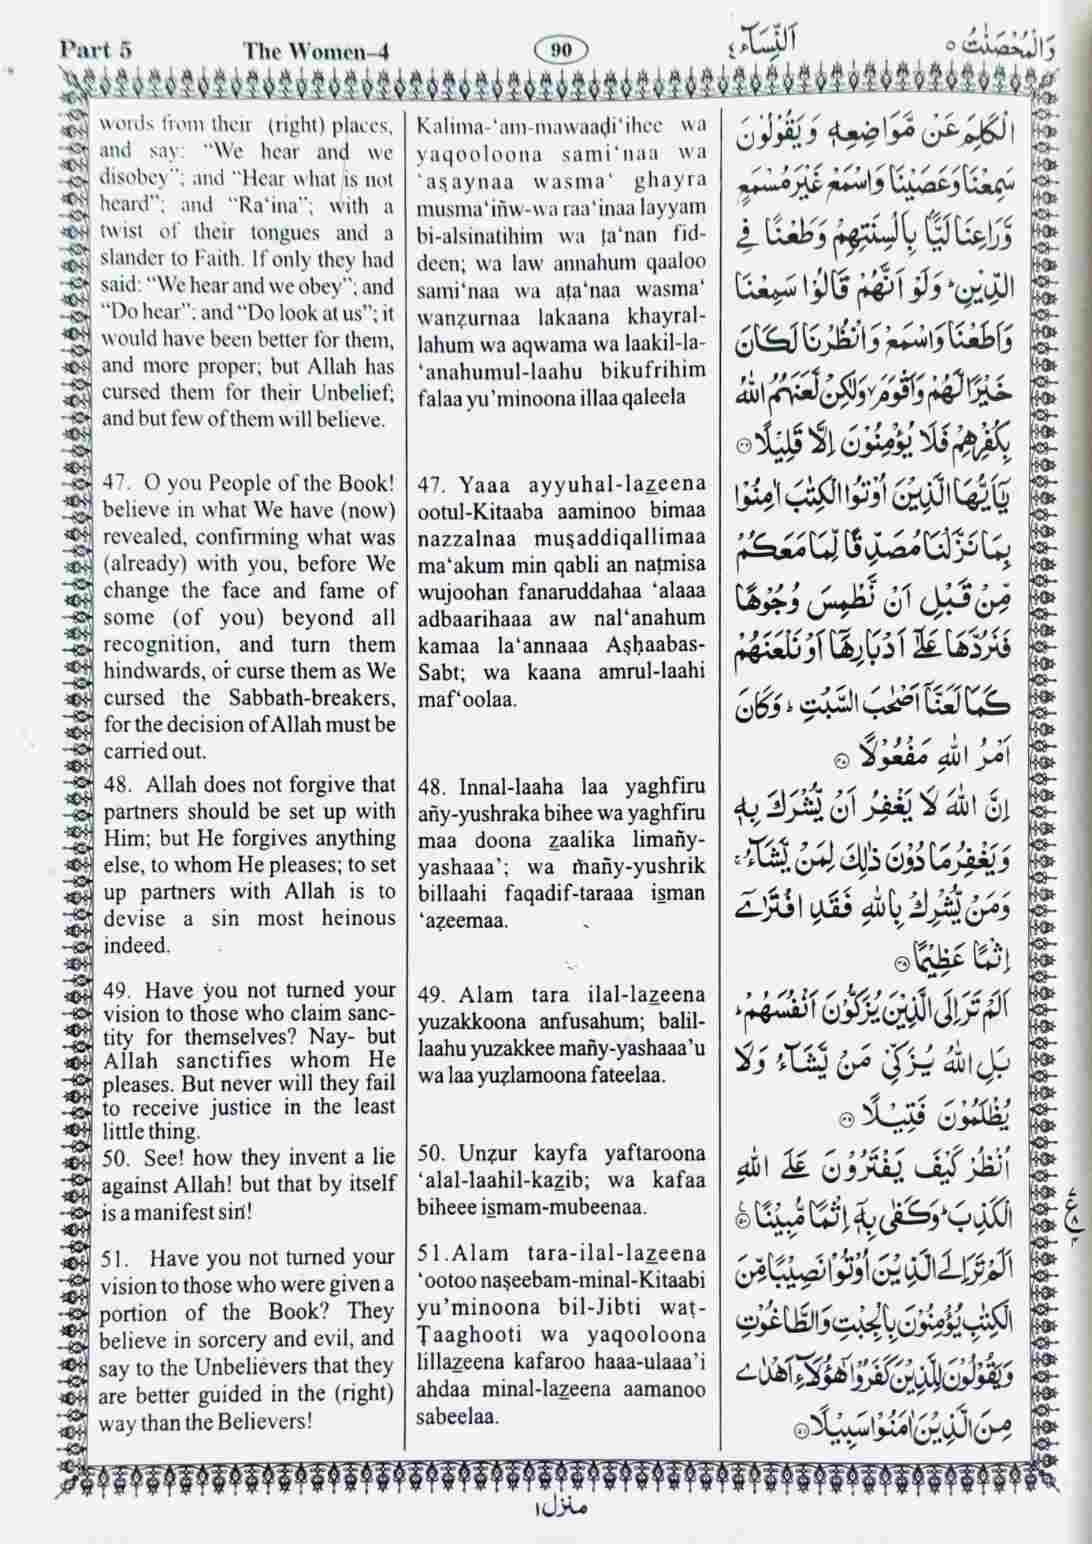 Part 5
The Women–4
90
اَلنِّسَآء ٤
وَالْمُحْصَنٰتُ ٥
words from their (right) places,
and say: “We hear and we
disobey”; and “Hear what is not
heard”; and “Ra‘ina”; with a
twist of their tongues and a
slander to Faith. If only they had
said: “We hear and we obey”; and
“Do hear”; and “Do look at us”; it
would have been better for them,
and more proper; but Allah has
cursed them for their Unbelief;
and but few of them will believe.
47. O you People of the Book!
believe in what We have (now)
revealed, confirming what was
(already) with you, before We
change the face and fame of
some (of you) beyond all
recognition, and turn them
hindwards, or curse them as We
cursed the Sabbath-breakers,
for the decision of Allah must be
carried out.
48. Allah does not forgive that
partners should be set up with
Him; but He forgives anything
else, to whom He pleases; to set
up partners with Allah is to
devise a sin most heinous
indeed.
49. Have you not turned your
vision to those who claim sanc-
tity for themselves? Nay- but
Allah sanctifies whom He
pleases. But never will they fail
to receive justice in the least
little thing.
50. See! how they invent a lie
against Allah! but that by itself
is a manifest sin!
51. Have you not turned your
vision to those who were given a
portion of the Book? They
believe in sorcery and evil, and
say to the Unbelievers that they
are better guided in the (right)
way than the Believers!
Kalima-‘am-mawaaḍi‘ihee wa
yaqooloona sami‘naa wa
‘aṣaynaa wasma‘ ghayra
musma‘iñw-wa raa‘inaa layyam
bi-alsinatihim wa ṭa‘nan fid-
deen; wa law annahum qaaloo
sami‘naa wa aṭa‘naa wasma‘
wanẓurnaa lakaana khayral-
lahum wa aqwama wa laakil-la-
‘anahumul-laahu bikufrihim
falaa yu’minoona illaa qaleela
47. Yaaa ayyuhal-laz̲eena
ootul-Kitaaba aaminoo bimaa
nazzalnaa muṣaddiqallimaa
ma‘akum min qabli an naṭmisa
wujoohan fanaruddahaa ‘alaaa
adbaarihaaa aw nal‘anahum
kamaa la‘annaaa Aṣḥaabas-
Sabt; wa kaana amrul-laahi
maf‘oolaa.
48. Innal-laaha laa yaghfiru
añy-yushraka bihee wa yaghfiru
maa doona z̲aalika limañy-
yashaaa’; wa mañy-yushrik
billaahi faqadif-taraaa is̲man
‘aẓeemaa.
49. Alam tara ilal-laz̲eena
yuzakkoona anfusahum; balil-
laahu yuzakkee mañy-yashaaa’u
wa laa yuẓlamoona fateelaa.
50. Unẓur kayfa yaftaroona
‘alal-laahil-kaz̲ib; wa kafaa
biheee is̲mam-mubeenaa.
51.Alam tara-ilal-laz̲eena
‘ootoo naṣeebam-minal-Kitaabi
yu’minoona bil-Jibti waṭ-
Ṭaaghooti wa yaqooloona
lillaz̲eena kafaroo haaa-ulaaa’i
ahdaa minal-laz̲eena aamanoo
sabeelaa.
الْكَلِمَ عَنْ مَّوَاضِعِهٖ وَيَقُوْلُوْنَ
سَمِعْنَا وَعَصَيْنَا وَاسْمَعْ غَيْرَ مُسْمَعٍ
وَّرَاعِنَا لَيًّۢا بِاَلْسِنَتِهِمْ وَطَعْنًا فِي
الدِّيْنِ ؕ وَلَوْ اَنَّهُمْ قَالُوْا سَمِعْنَا
وَاَطَعْنَا وَاسْمَعْ وَانْظُرْنَا لَكَانَ
خَيْرًا لَّهُمْ وَاَقْوَمَ ۙ وَلٰكِنْ لَّعَنَهُمُ اللّٰهُ
بِكُفْرِهِمْ فَلَا يُؤْمِنُوْنَ اِلَّا قَلِيْلًا ۝٤٦
يٰۤاَيُّهَا الَّذِيْنَ اُوْتُوا الْكِتٰبَ اٰمِنُوْا
بِمَا نَزَّلْنَا مُصَدِّقًا لِّمَا مَعَكُمْ
مِّنْ قَبْلِ اَنْ نَّطْمِسَ وُجُوْهًا
فَنَرُدَّهَا عَلٰۤى اَدْبَارِهَاۤ اَوْ نَلْعَنَهُمْ
كَمَا لَعَنَّاۤ اَصْحٰبَ السَّبْتِ ؕ وَكَانَ
اَمْرُ اللّٰهِ مَفْعُوْلًا ۝٤٧
اِنَّ اللّٰهَ لَا يَغْفِرُ اَنْ يُّشْرَكَ بِهٖ
وَيَغْفِرُ مَا دُوْنَ ذٰلِكَ لِمَنْ يَّشَآءُ ۚ
وَمَنْ يُّشْرِكْ بِاللّٰهِ فَقَدِ افْتَرٰۤى
اِثْمًا عَظِيْمًا ۝٤٨
اَلَمْ تَرَ اِلَى الَّذِيْنَ يُزَكُّوْنَ اَنْفُسَهُمْ ؕ
بَلِ اللّٰهُ يُزَكِّيْ مَنْ يَّشَآءُ وَلَا
يُظْلَمُوْنَ فَتِيْلًا ۝٤٩
اُنْظُرْ كَيْفَ يَفْتَرُوْنَ عَلَى اللّٰهِ
الْكَذِبَ ؕ وَكَفٰى بِهٖۤ اِثْمًا مُّبِيْنًا ۝٥٠
ع
اَلَمْ تَرَ اِلَى الَّذِيْنَ اُوْتُوْا نَصِيْبًا مِّنَ
الْكِتٰبِ يُؤْمِنُوْنَ بِالْجِبْتِ وَالطَّاغُوْتِ
وَيَقُوْلُوْنَ لِلَّذِيْنَ كَفَرُوْا هٰۤؤُلَآءِ اَهْدٰى
مِنَ الَّذِيْنَ اٰمَنُوْا سَبِيْلًا ۝٥١
منزل ۱